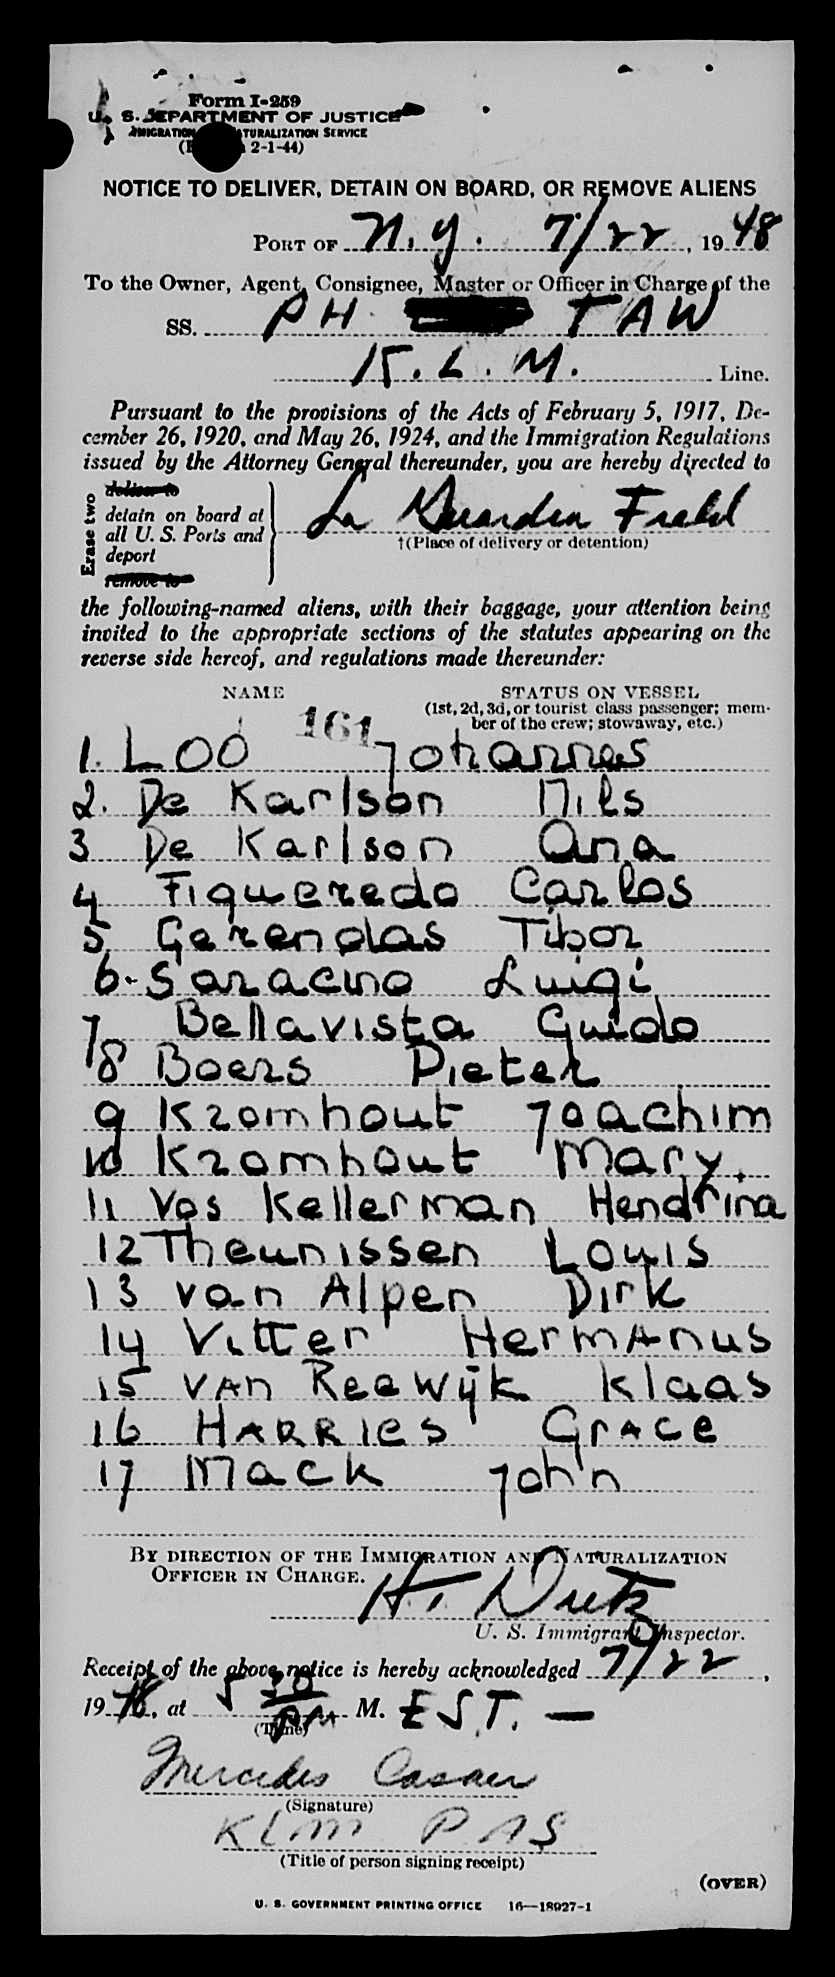 Form I-259
U. S. DEPARTMENT OF JUSTICE
IMMIGRATION NATURALIZATION SERVICE
2-1-44)
NOTICE TO DELIVER, DETAIN ON BOARD, OR REMOVE ALIENS
PORT OF N.Y. 7/22, 1948
To the Owner, Agent, Consignee, Master or Officer in Charge of the
SS. PH TAW
K.L.M. Line.
Pursuant to the provisions of the Acts of February 5, 1917, De-
cember 26, 1920, and May 26, 1924, and the Immigration Regulations
issued by the Attorney General thereunder, you are hereby directed to
Erase two
deliver to
detain on board at
all U. S. Ports and
deport
remove to
La Guardia Field
†(Place of delivery or detention)
the following-named aliens, with their baggage, your attention being
invited to the appropriate sections of the statutes appearing on the
reverse side hereof, and regulations made thereunder:
NAME
STATUS ON VESSEL
(1st, 2d, 3d, or tourist class passenger; mem-
ber of the crew; stowaway, etc.)
161
1. Loo Johannes
2. De Karlson Nils
3 De Karlson Ana
4 Figueredo Carlos
5 Gerendas Tibor
6. Saracino Luigi
7 Bellavista Guido
8 Boers Pieter
9 Kromhout Joachim
10 Kromhout Mary.
11 Vos Kellerman Hendrina
12 Theunissen Louis
13 van Alpen Dirk
14 Vitter HermAnus
15 VAn Reewijk Klaas
16 HARRIES GrAce
17 Mack John
BY DIRECTION OF THE IMMIGRATION AND NATURALIZATION
OFFICER IN CHARGE.
U. S. Immigrant Inspector.
Receipt of the above notice is hereby acknowledged 7/22,
1948, at 5 30 PM M. E.S.T. —
(Time)
Mercedes
(Signature)
KLM PAS
(Title of person signing receipt)
(OVER)
U. S. GOVERNMENT PRINTING OFFICE 16—18927-1